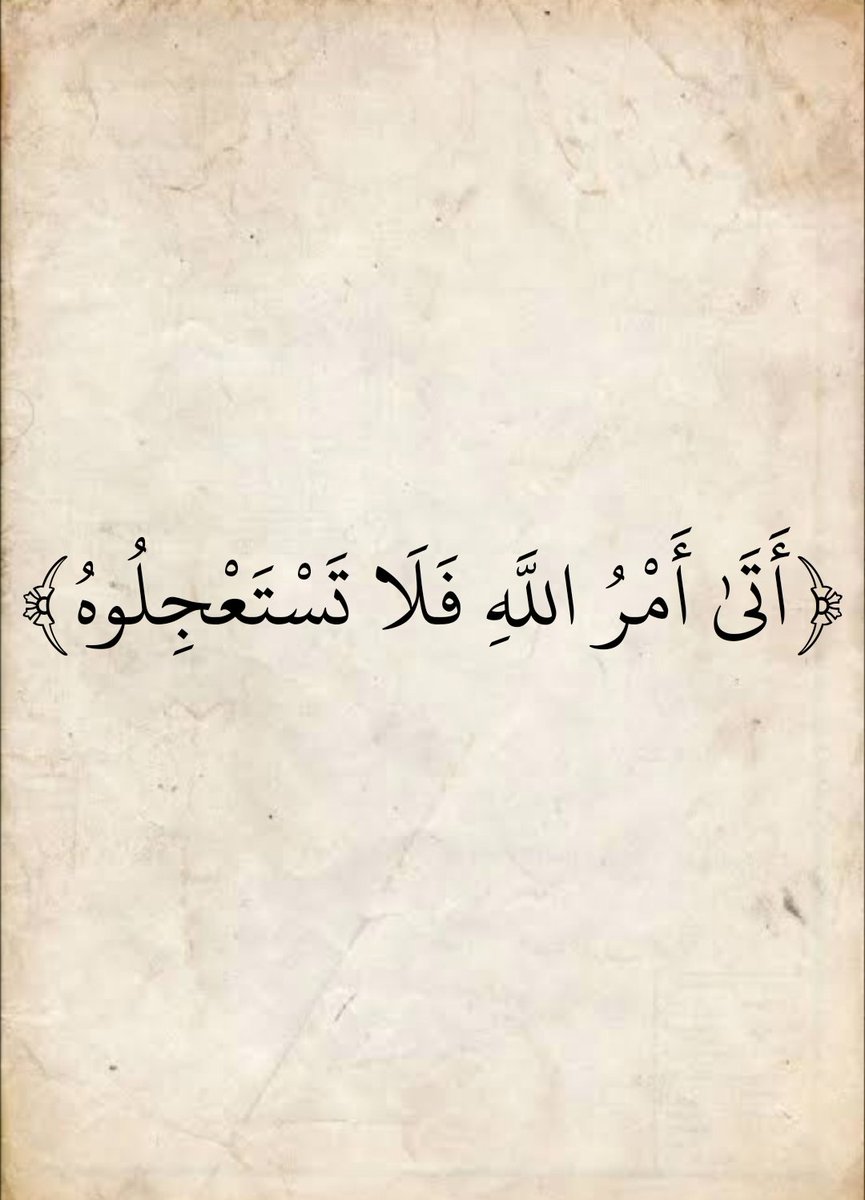 ﴿أَتَىٰ أَمْرُ اللَّهِ فَلَا تَسْتَعْجِلُوهُ﴾